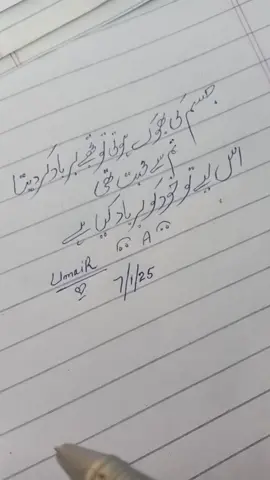 جسم کی بھوک ہوتی تو تجھے برباد کر دیتا
تم سے محبت تھی
اس لیے تو خود کو برباد کیا ہے
A
Umair
7/1/25